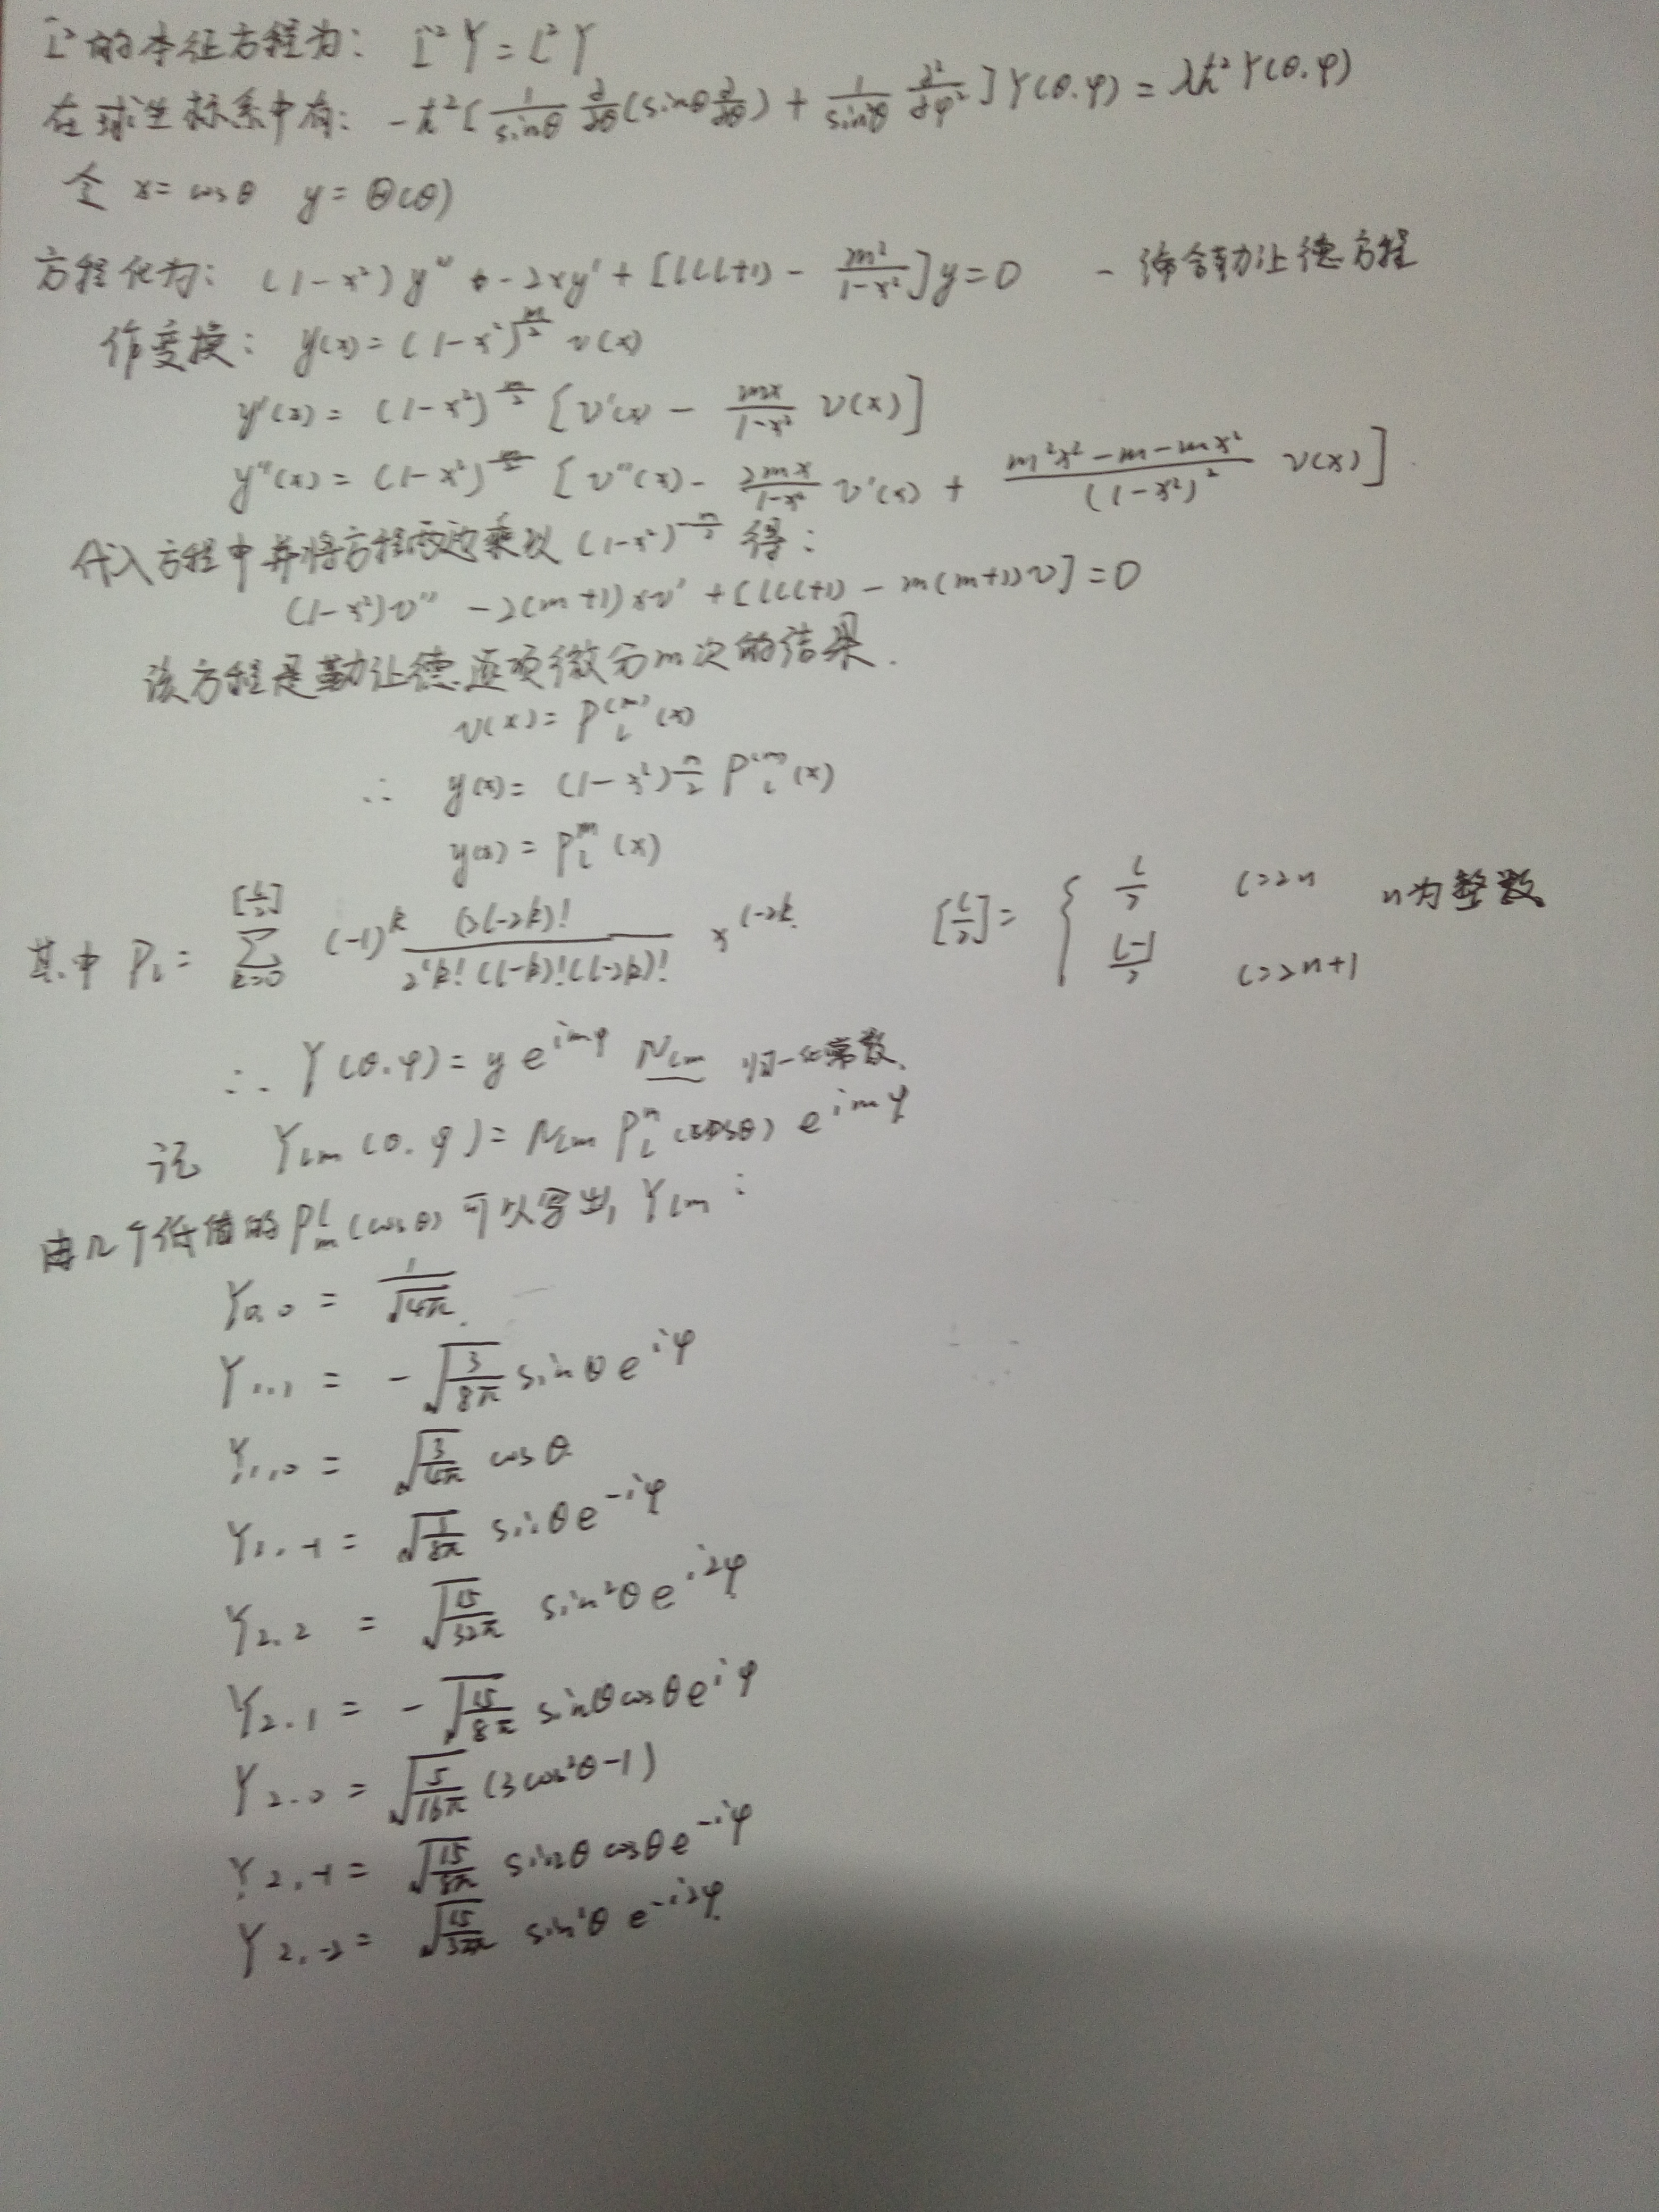 L̂² 的本征方程为: L̂²Y = L²Y
在球坐标系中有: -ħ²[1/sinθ ∂/∂θ(sinθ ∂/∂θ) + 1/sin²θ ∂²/∂φ²]Y(θ.φ) = λħ²Y(θ.φ)
令 x = cosθ y = Θ(θ)
方程化为: (1-x²)y'' - 2xy' + [l(l+1) - m²/(1-x²)]y = 0 - 缔合勒让德方程
作变换: y(x) = (1-x²)^(m/2) v(x)
y'(x) = (1-x²)^(m/2) [v'(x) - mx/(1-x²) v(x)]
y''(x) = (1-x²)^(m/2) [v''(x) - 2mx/(1-x²) v'(x) + (m²x²-m-mx²)/(1-x²)² v(x)]
代入方程中并将方程两边乘以 (1-x²)^(-m/2) 得:
(1-x²)v'' - 2(m+1)xv' + [l(l+1) - m(m+1)v] = 0
该方程是勒让德逐项微分m次的结果.
v(x) = P_l^(m)(x)
∴ y(x) = (1-x²)^(m/2) P_l^(m)(x)
y(x) = P_l^m(x)
其中 P_l = Σ_{k=0}^{[l/2]} (-1)^k (2l-2k)!/(2^l k!(l-k)!(l-2k)!) x^(l-2k) [l/2] = { l/2 l=2n n为整数
(l-1)/2 l=2n+1
∴ Y(θ.φ) = y e^(imφ) N_lm 归一化常数.
记 Y_lm(θ.φ) = N_lm P_l^m(cosθ) e^(imφ)
由几个低值的 P_m^l(cosθ) 可以写出 Y_lm:
Y_0.0 = 1/√4π.
Y_1.1 = -√(3/8π) sinθ e^(iφ)
Y_1,0 = √(3/4π) cosθ
Y_1.-1 = √(3/8π) sinθ e^(-iφ)
Y_2.2 = √(15/32π) sin²θ e^(i2φ)
Y_2.1 = -√(15/8π) sinθ cosθ e^(iφ)
Y_2.0 = √(5/16π) (3cos²θ-1)
Y_2.-1 = √(15/8π) sinθ cosθ e^(-iφ)
Y_2.-2 = √(15/32π) sin²θ e^(-i2φ)